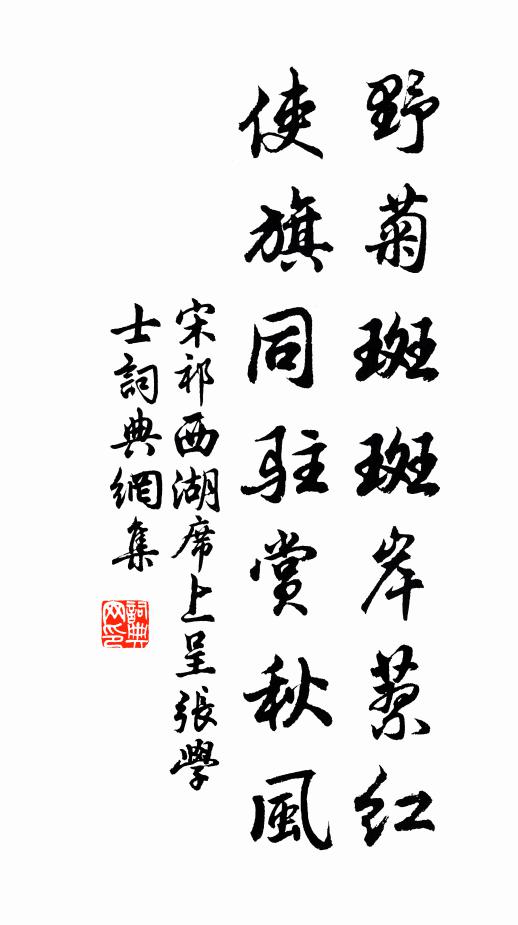 野菊斑斑岸蓼紅
使旗同駐賞秋風
宋祁西湖席上呈張學
士詞典網集
詞典
网印